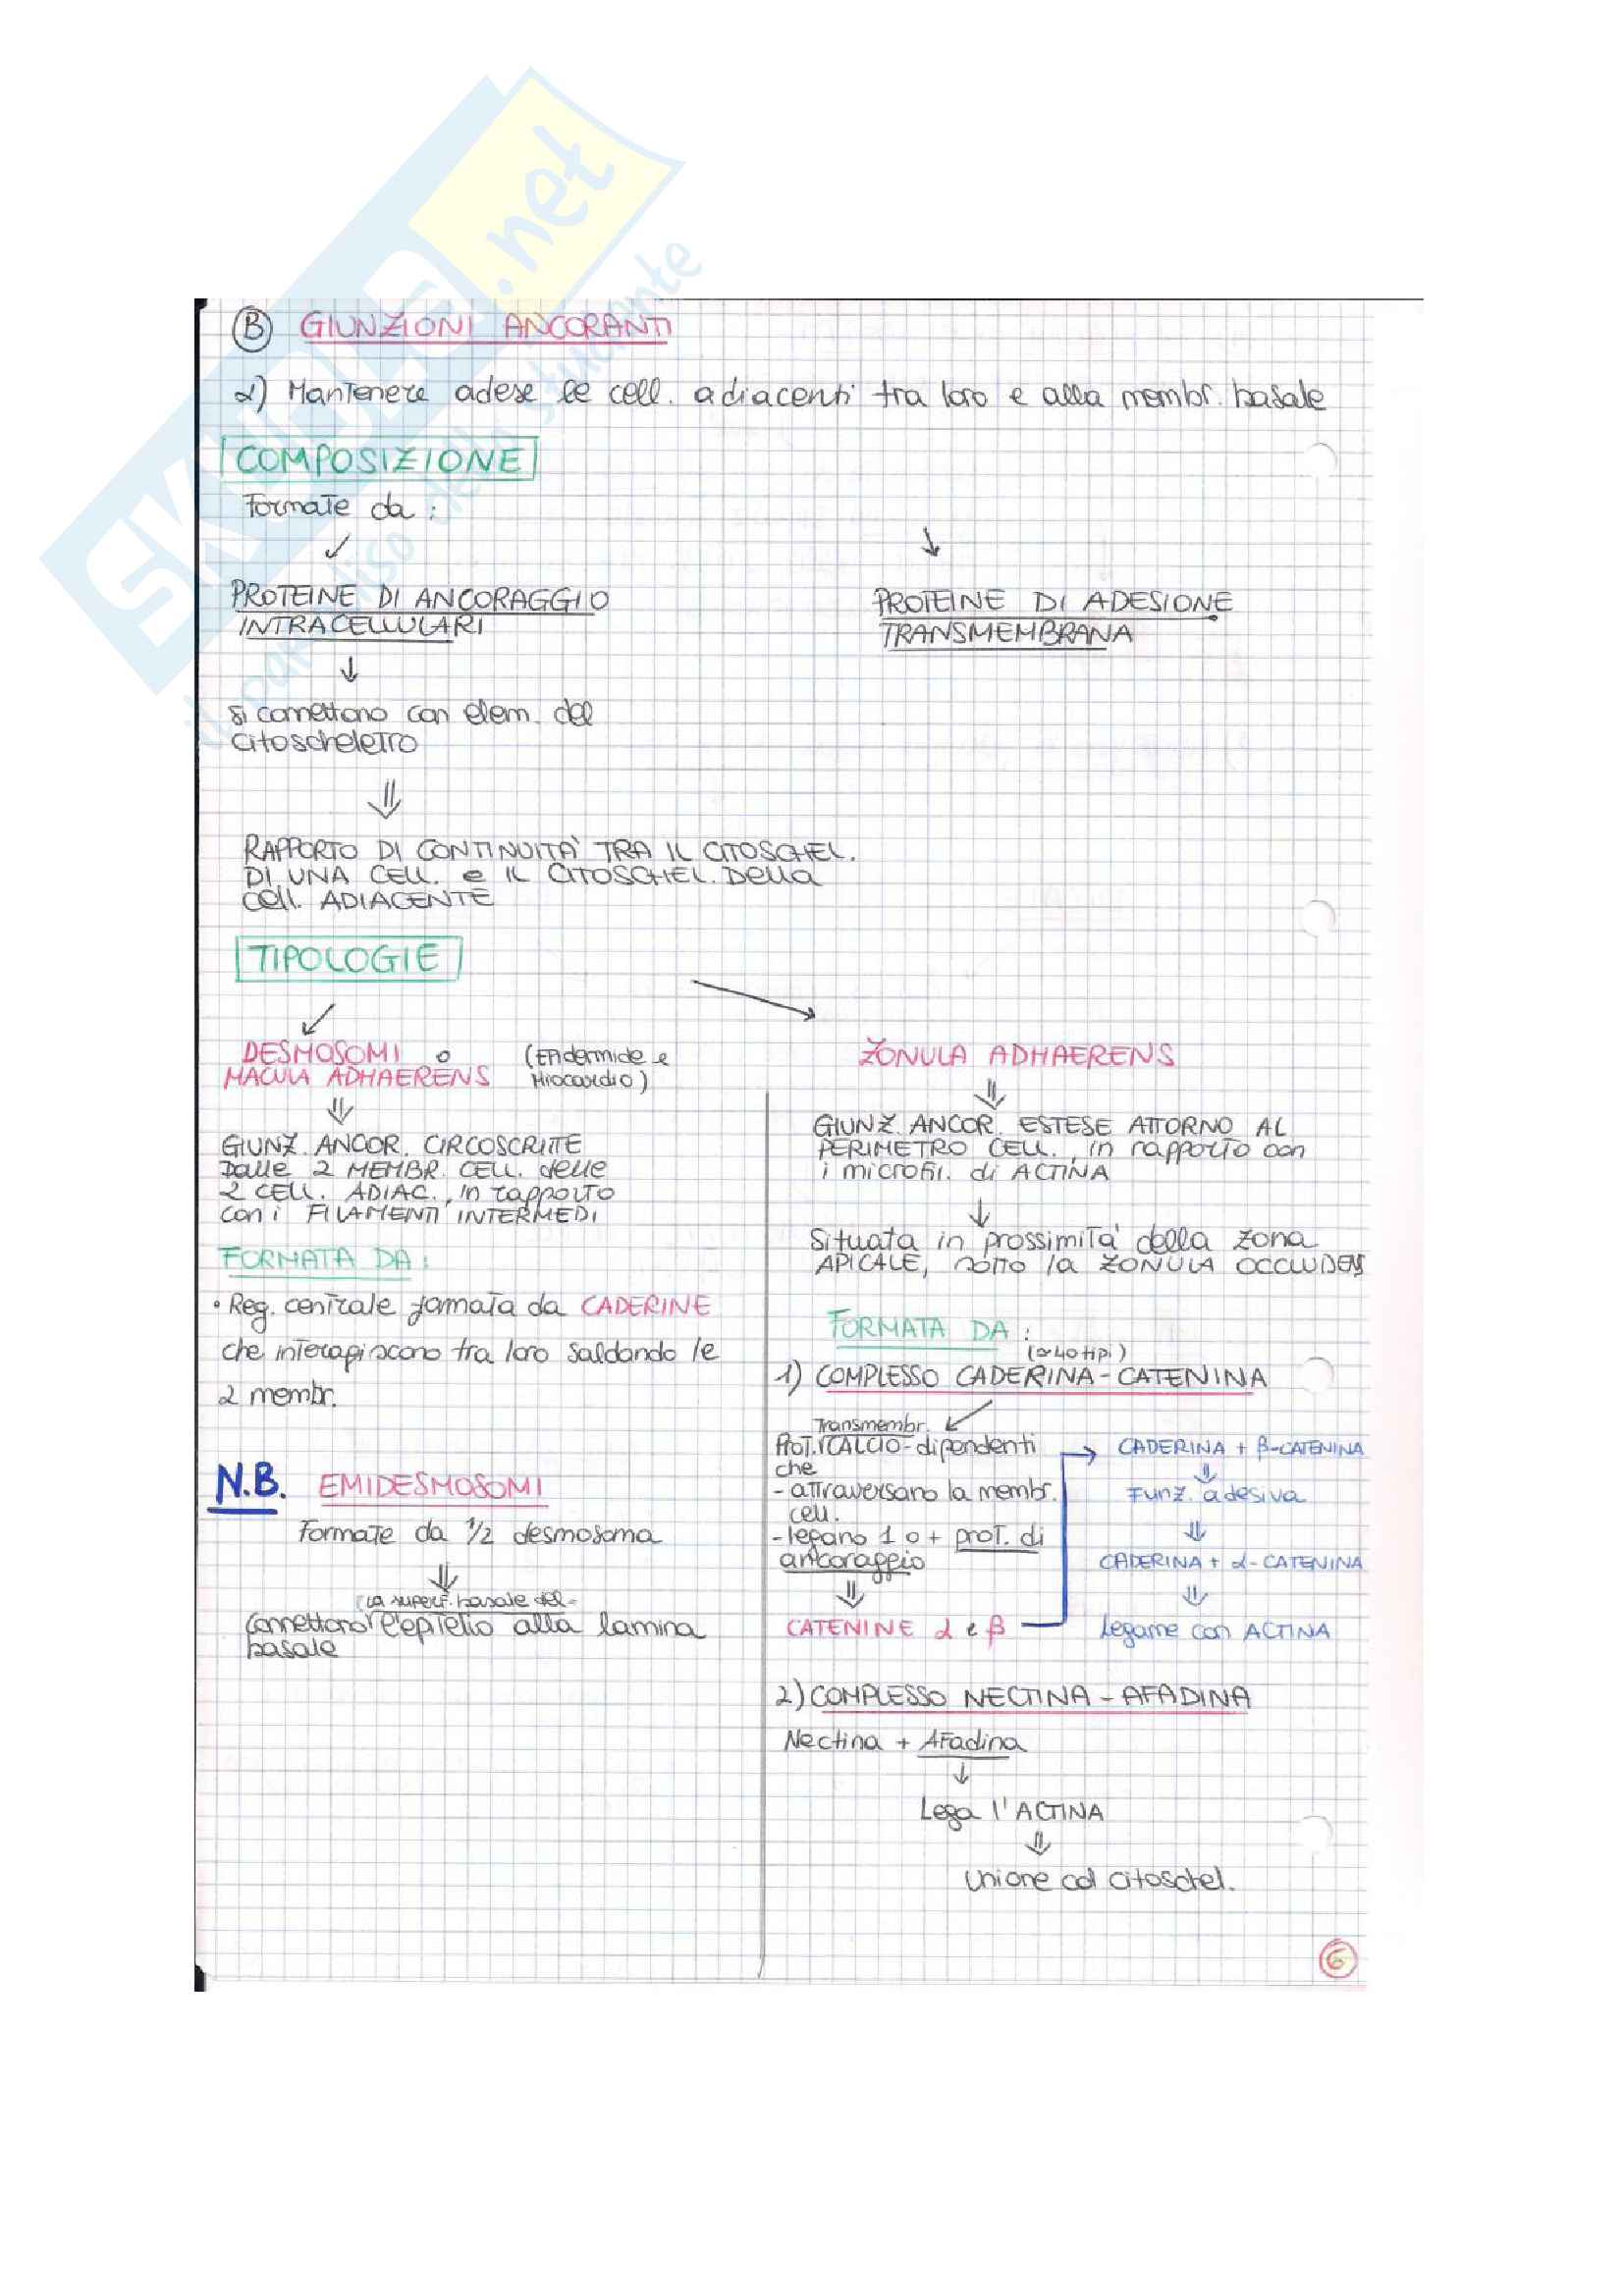 SKUOLA.net
il paradiso dello studente
B GIUNZIONI ANCORANTI
α) Mantenere adese le cell. adiacenti tra loro e alla membr. basale
COMPOSIZIONE
Formate da :
PROTEINE DI ANCORAGGIO
INTRACELLULARI
PROTEINE DI ADESIONE
TRANSMEMBRANA
si connettono con elem. del
citoscheletro
RAPPORTO DI CONTINUITÀ TRA IL CITOSCHEL.
DI UNA CELL. e IL CITOSCHEL. Della
Cell. ADIACENTE
TIPOLOGIE
DESMOSOMI o
MACULA ADHAERENS
(Epidermide e
Miocardio)
GIUNZ. ANCOR. CIRCOSCRITTE
Dalle 2 MEMBR. CELL. delle
2 CELL. ADIAC., in rapporto
con i FILAMENTI INTERMEDI
FORMATA DA:
• Reg. centrale formata da CADERINE
che interagiscono tra loro saldando le
2 membr.
N.B. EMIDESMOSOMI
Formate da 1/2 desmosoma
(la superf. basale del-
Connettono l'epitelio alla lamina
basale
ZONULA ADHAERENS
GIUNZ. ANCOR. ESTESE ATTORNO AL
PERIMETRO CELL., in rapporto con
i microfil. di ACTINA
Situata in prossimità della zona
APICALE, sotto la ZONULA OCCLUDENS
FORMATA DA :
(≃40 tipi)
1) COMPLESSO CADERINA - CATENINA
Transmembr.
Prot. CALCIO-dipendenti
che
- attraversano la membr.
cell.
- legano 1 o + prot. di
ancoraggio
CATENINE α e β
CADERINA + β-CATENINA
Funz. adesiva
CADERINA + α-CATENINA
Legame con ACTINA
2) COMPLESSO NECTINA - AFADINA
Nectina + AFadina
Lega l'ACTINA
Unione col citoschel.
6